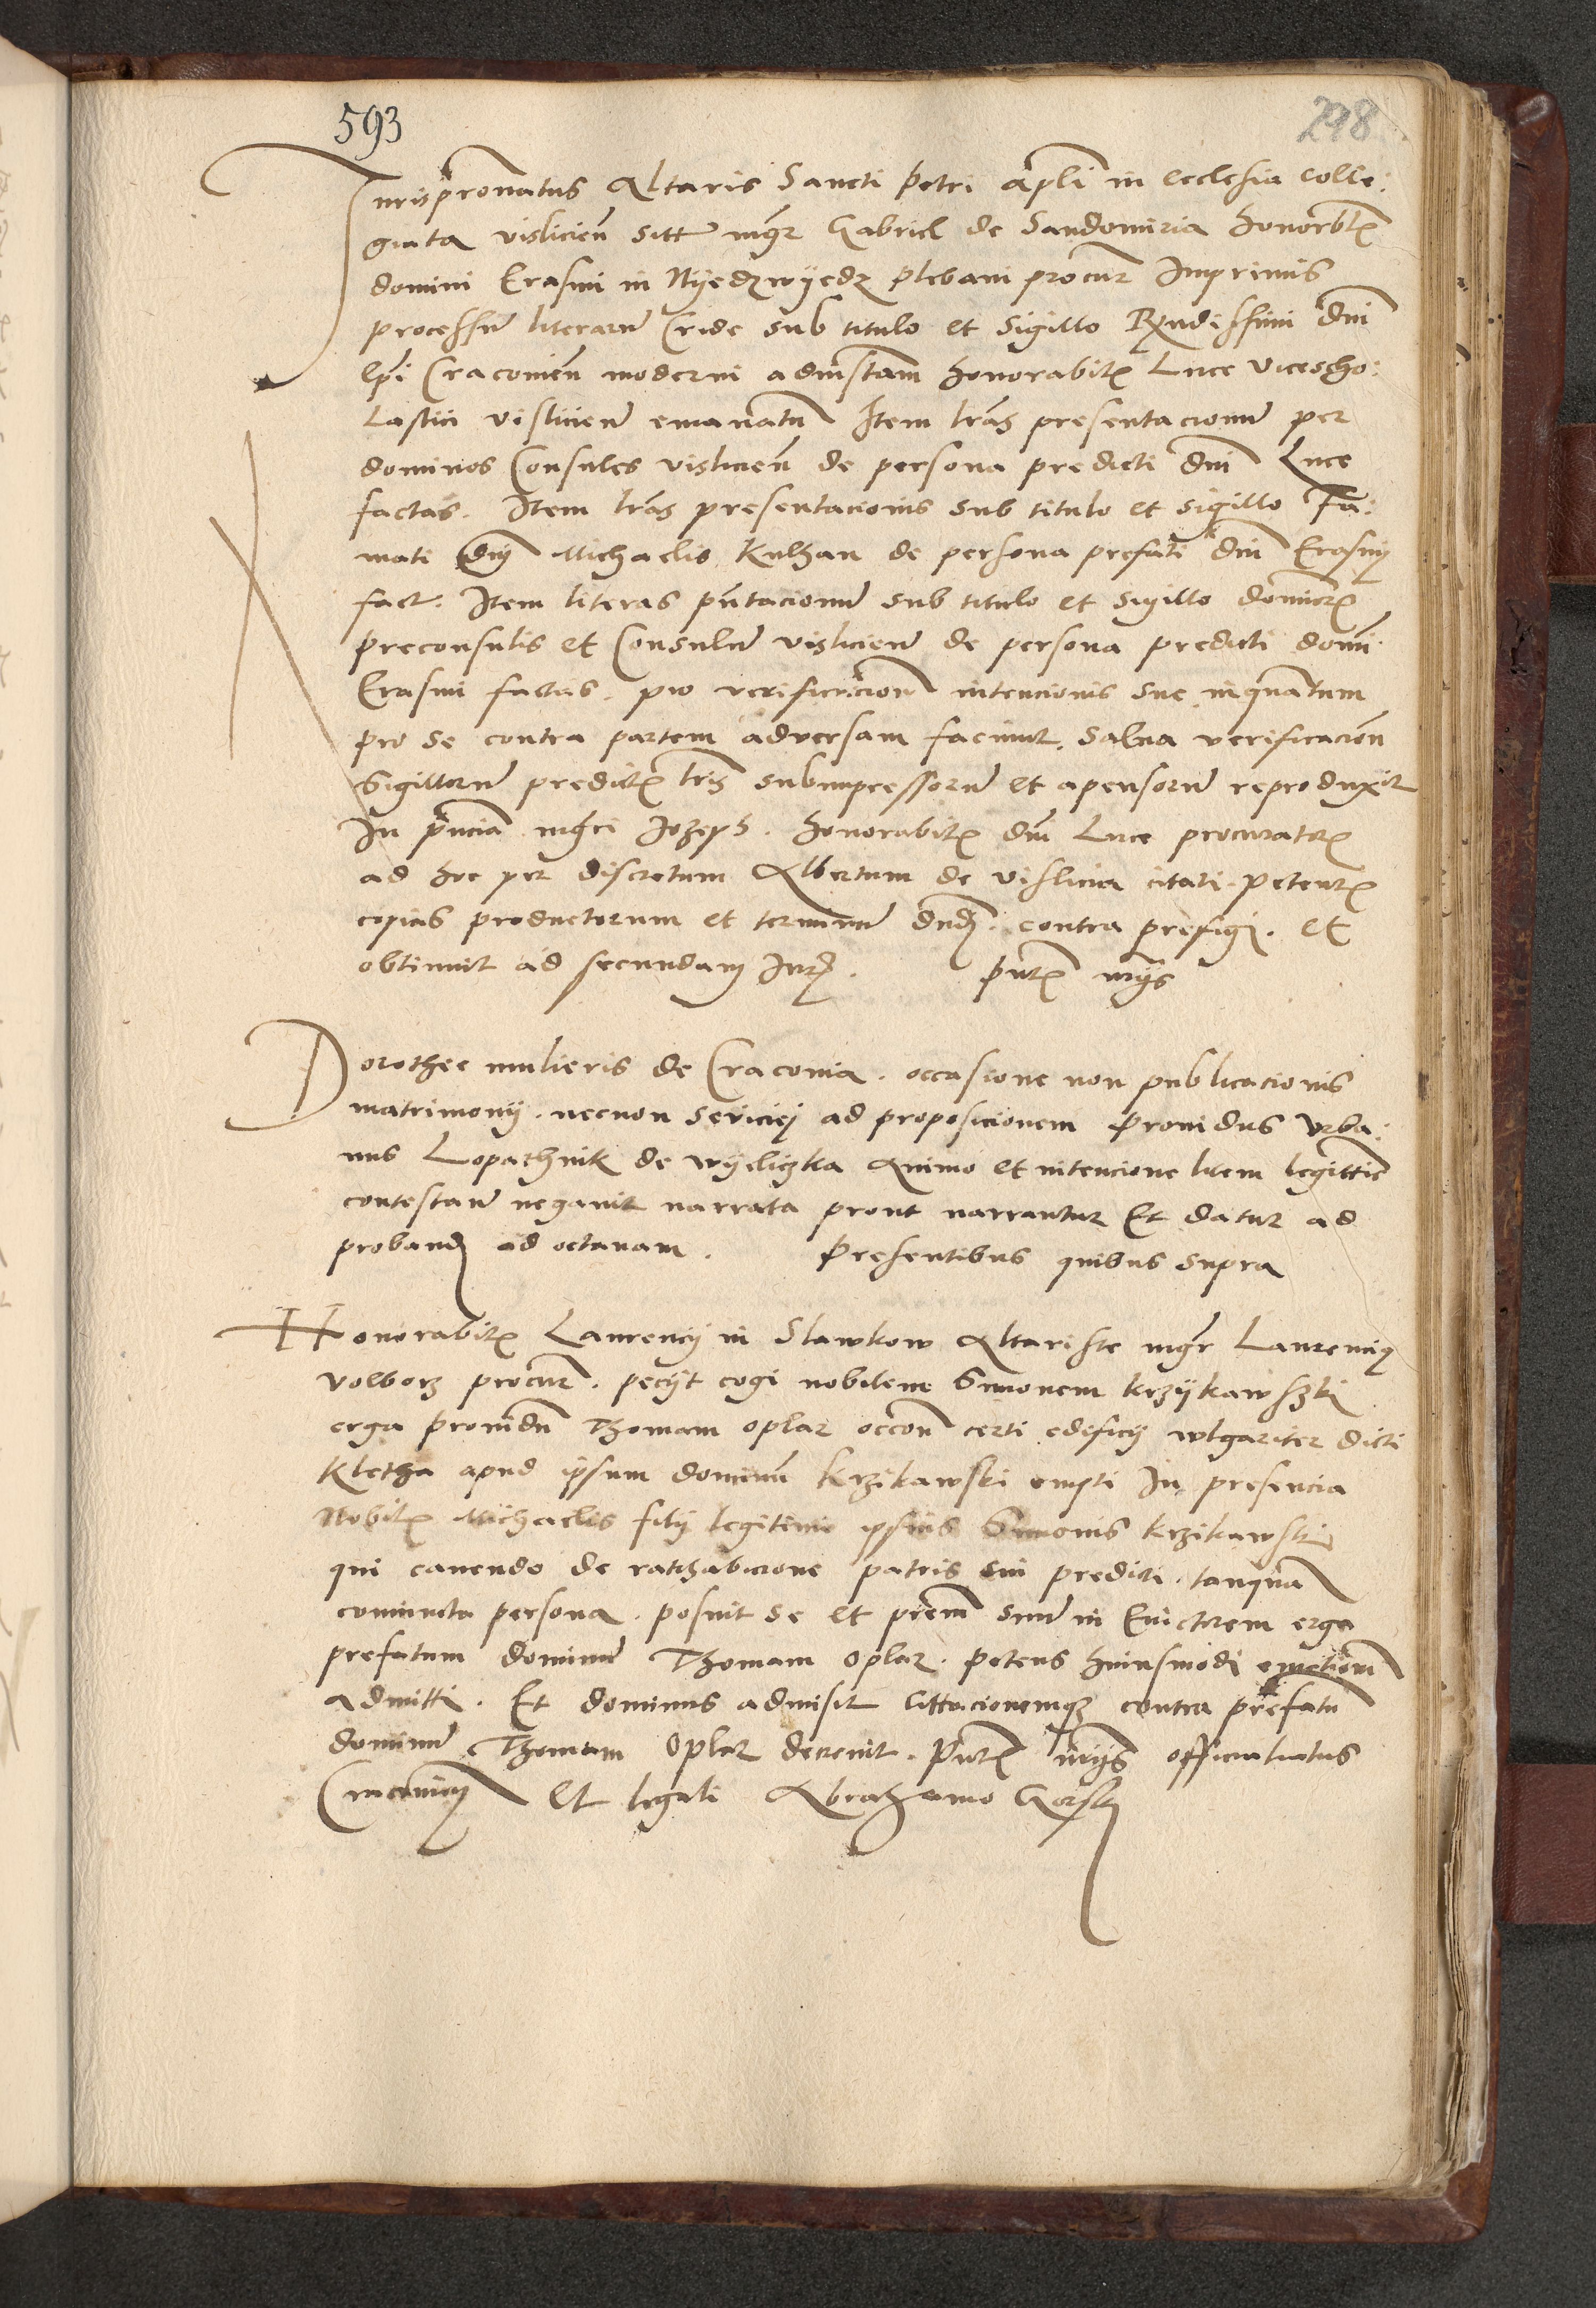 593
298
Jurispronatus Altaris Sancti Petri apli in ecclesia colle:
giata visliciem sitt mgr Gabriel de Sandomiria honorbl
domini Erasmi in Nyedzwyedz plebani procur Imprimis
processum literarum Cride sub titulo et Sigillo Rxndissimi dni
Epi Cracovien moderni ad instam honorabil Luce vicescho:
lastici vislicien emanatu Item lras presentacionum per
dominos Consules vislicien de persona predicti dni Luce
factas. Item lras presentacionis sub titulo et sigillo Fa:
mati dnj Michaelis Kulhan de persona prefati dni Erasmj
fact. Item literas pntacionum sub titulo et sigillo dominor
preconsulis et Consulum vislicien de persona predicti domi.
Erasmi factas. pro verificacion intencionis sue inquantum
pro se contra partem adversam faciunt. salva verificacion
Sigillorum predict lris subimpressorum et apensorum reproduxit
In pncia mgri Jozeph. honorabil dni Luce procurator
ad hoc per discretum Albertum de vislicia citati. petent
copias productorum et terminum dnd contra prefigi. et
obtinuit ad secundam Jur. pnt nrijs
Dorothee mulieris de Cracovia. occasione non publicacionis
matrimonij. necnon seviciej ad proposicionem Providus Urba:
nus Lopathnik de wyeliczka Animo et intencione litem legittie
contestan negavit narrata prout narrantur Et datur ad
proband ad octavam. Presentibus quibus supra
Honorabil Laurencij in Slawkow Altariste mgr Laurencius
volborz procur. pecijt cogi nobilem Simonem krzykawszki
erga providu Thomam oplar occon certi edificij wlgariter dicti
Kletha apud ipsum dominu Krzikawski empti In presencia
Nobil Michaelis filij legitimi ipsius Simonis krzikawski
qui cavendo de rathabicione patris sui predicti. tanqua
coniuncta persona. posuit se et prem suum in Evictorem erga
prefatum dominum Thomam oplar. petens huiusmodi
admitti. Et dominus admisit Cittacionemqz contra prefatu
dominum Thomam Oplar decrevit. pnt nrijs officialatus
Cracovien Et legali Abrahamo Gorski